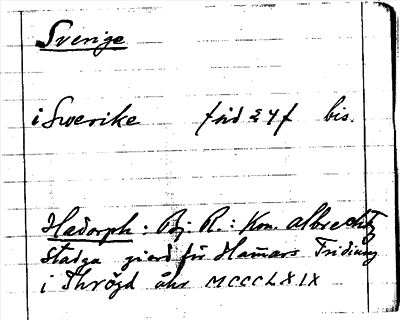 Sverige
i Swerike frid 24 f bis.
Hadorph: Bj. R.: Kon. Albrechtz
Stadga giord för Hamars Fridiung
i Thrögd åhr MCCCLXIX